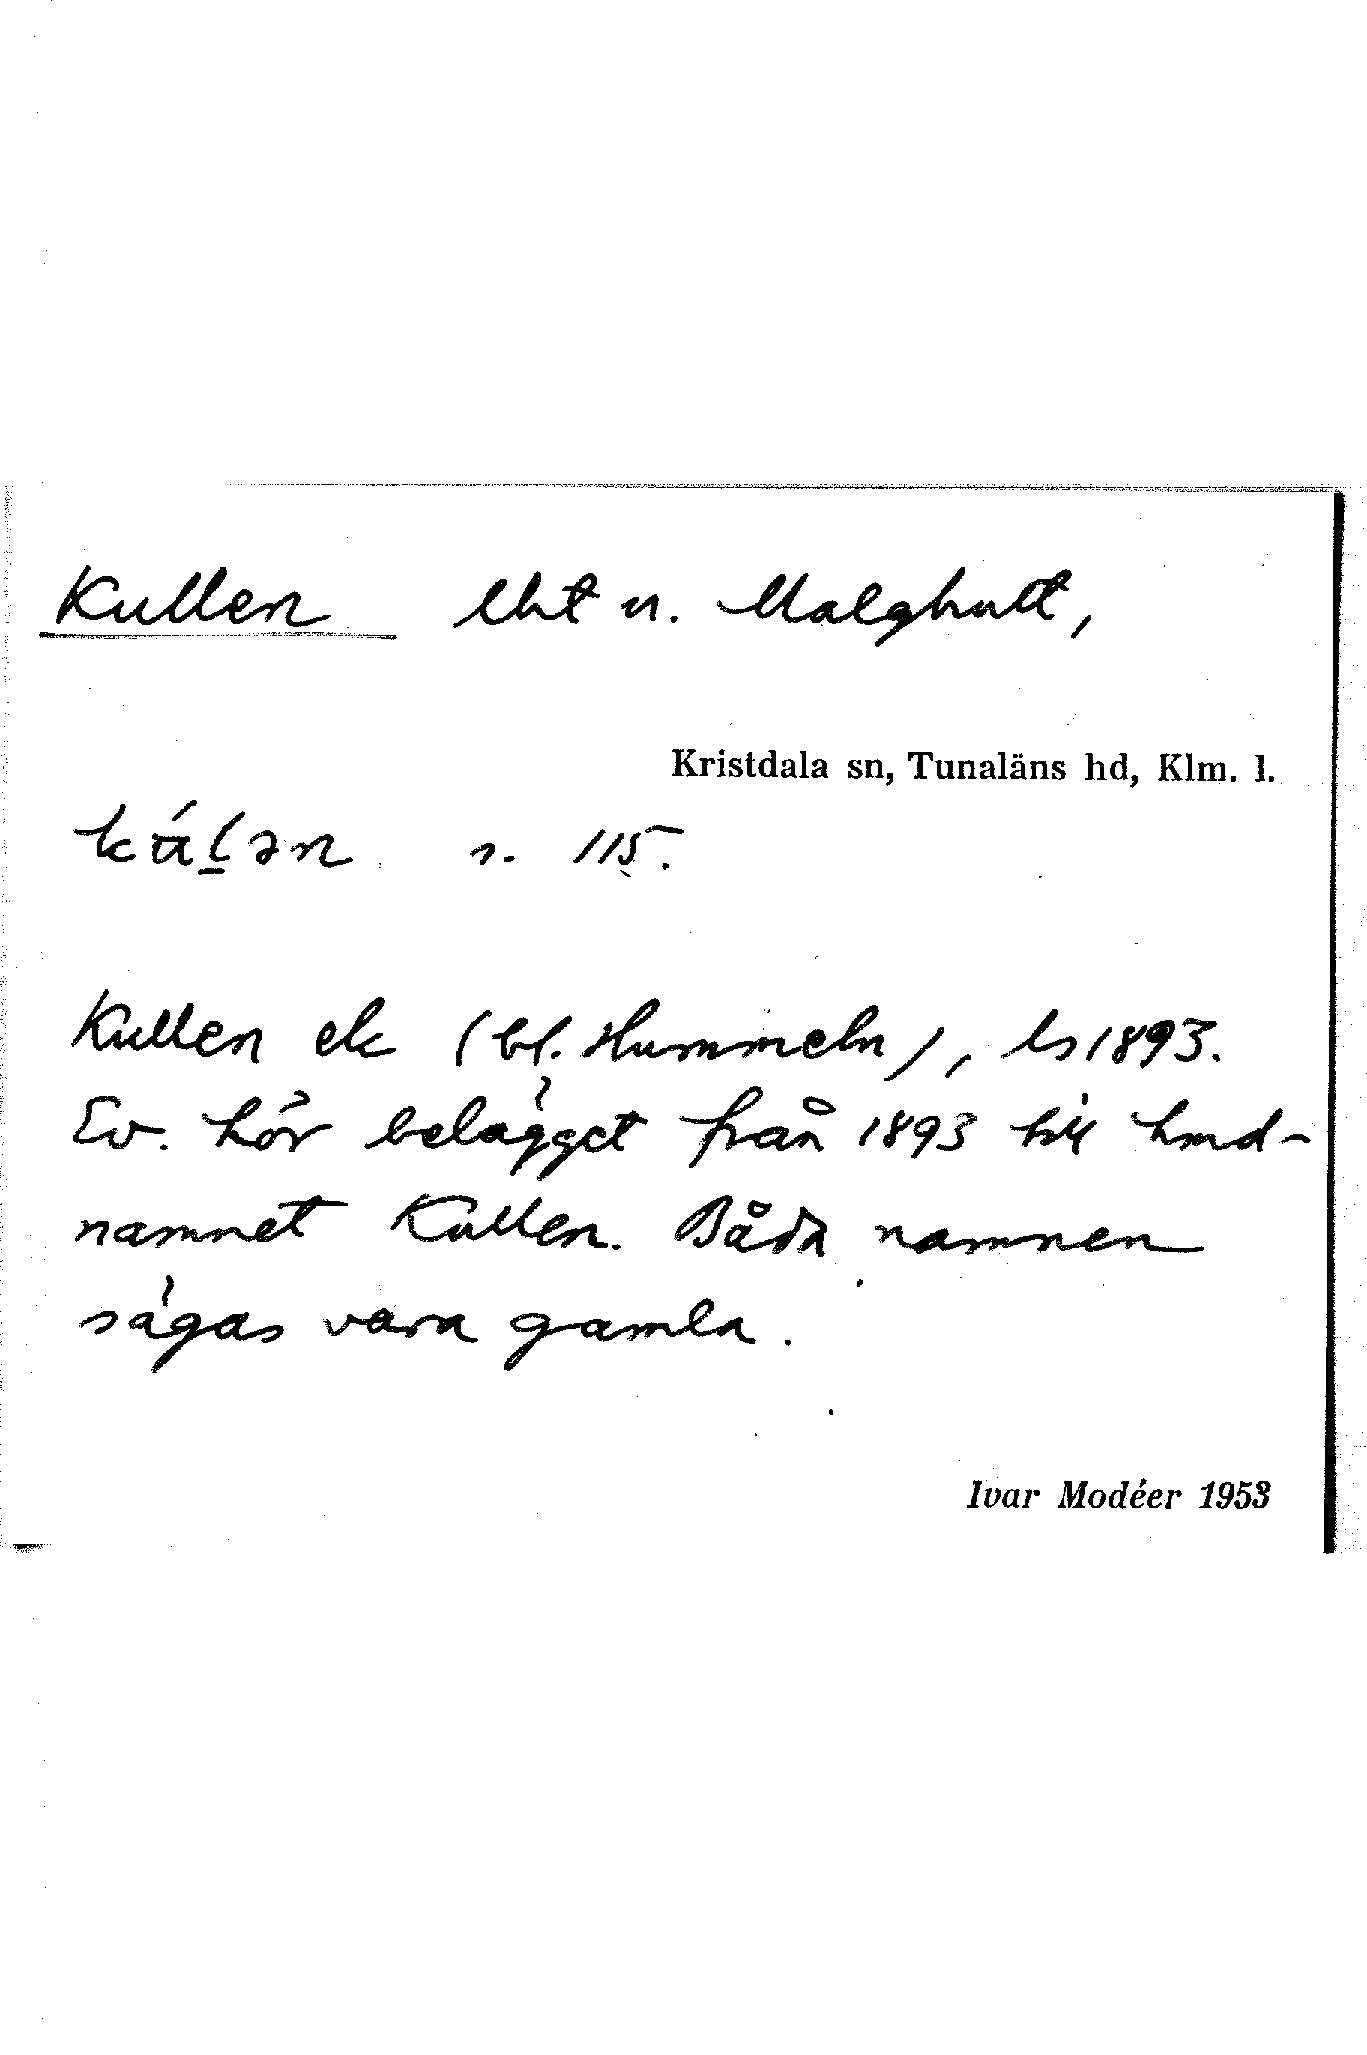 Kullen lht u. Malghult,
Kristdala sn, Tunaläns hd, Klm. l.
s. 115.
Kullen ek (bl. Hummeln), ls 1893.
Ev. hör belägget från 1893 till hmd-
namnet Kullen. Båda namnen
sägas vara gamla.
Ivar Modéer 1953